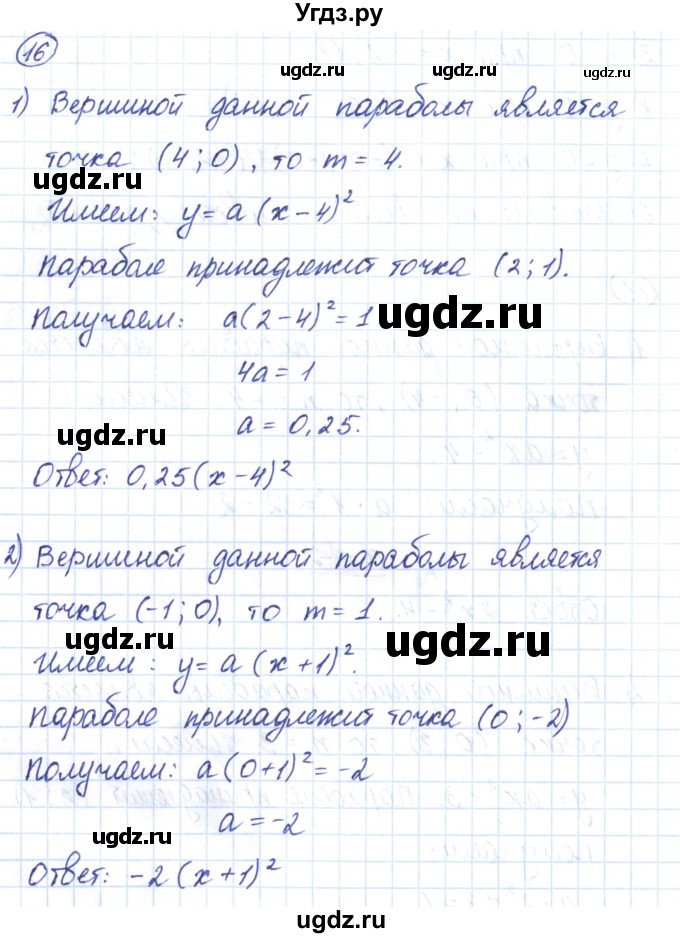 Угдз.ру
16
1) Вершиной данной параболы является
точка (4; 0), то m = 4.
Имеем: y = a(x – 4)²
Параболе принадлежит точка (2; 1).
Получаем: a(2 – 4)² = 1
4a = 1
a = 0,25.
Ответ: 0,25(x – 4)²
2) Вершиной данной параболы является
точка (-1; 0), то m = 1.
Имеем: y = a(x + 1)².
Параболе принадлежит точка (0; -2)
Получаем: a(0+1)² = -2
a = -2
Ответ: -2(x+1)²
ugdz.ru
ugdz.ru
ugdz.ru
ugdz.ru
ugdz.ru
ugdz.ru
ugdz.ru
ugdz.ru
ugdz.ru
ugdz.ru